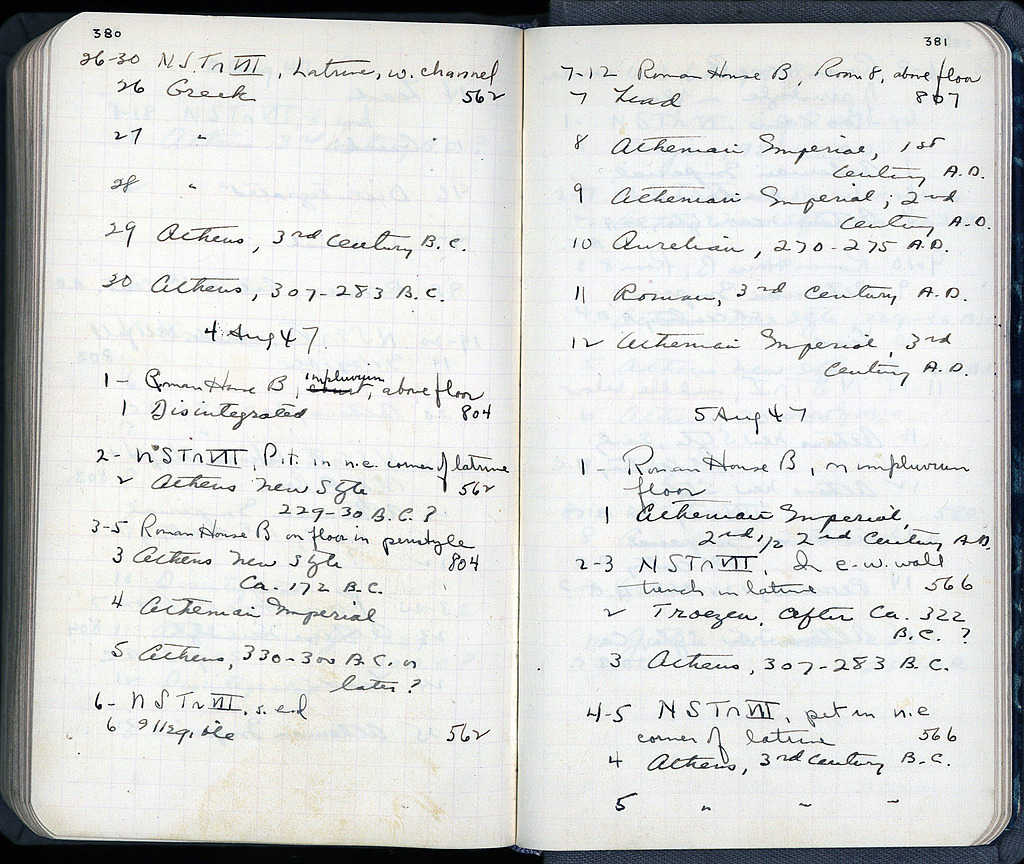 380
26-30 NSTr VII, Latrine, w. channel
26 Greek 562
27 "
28 "
29 Athens, 3rd Century B.C.
30 Athens, 307-283 B.C.
4 Aug 47
1- Roman House B, impluvium, above floor
1 Disintegrated 804
2- NSTr VII, Pit in n.e. corner of latrine
2 Athens New Style 562
229-30 B.C.?
3-5 Roman House B on floor in peristyle
3 Athens New Style 804
Ca. 172 B.C.
4 Athenian Imperial
5 Athens, 330-300 B.C. or
later?
6- NSTr VII, s. end
6 Illegible 562
381
7-12 Roman House B, Room 8, above floor
7 Lead 807
8 Athenian Imperial, 1st
Century A.D.
9 Athenian Imperial, 2nd
Century A.D.
10 Aurelian, 270-275 A.D.
11 Roman, 3rd Century A.D.
12 Athenian Imperial, 3rd
Century A.D.
5 Aug 47
1- Roman House B, on impluvium
floor
1 Athenian Imperial,
2nd 1/2 2nd Century A.D.
2-3 NSTr VII, In e-w. wall
trench in latrine 566
2 Troezen, after Ca. 322
B.C. ?
3 Athens, 307-283 B.C.
4-5 NSTr VII, pit in n.e
corner of latrine 566
4 Athens, 3rd Century B.C.
5 " " "